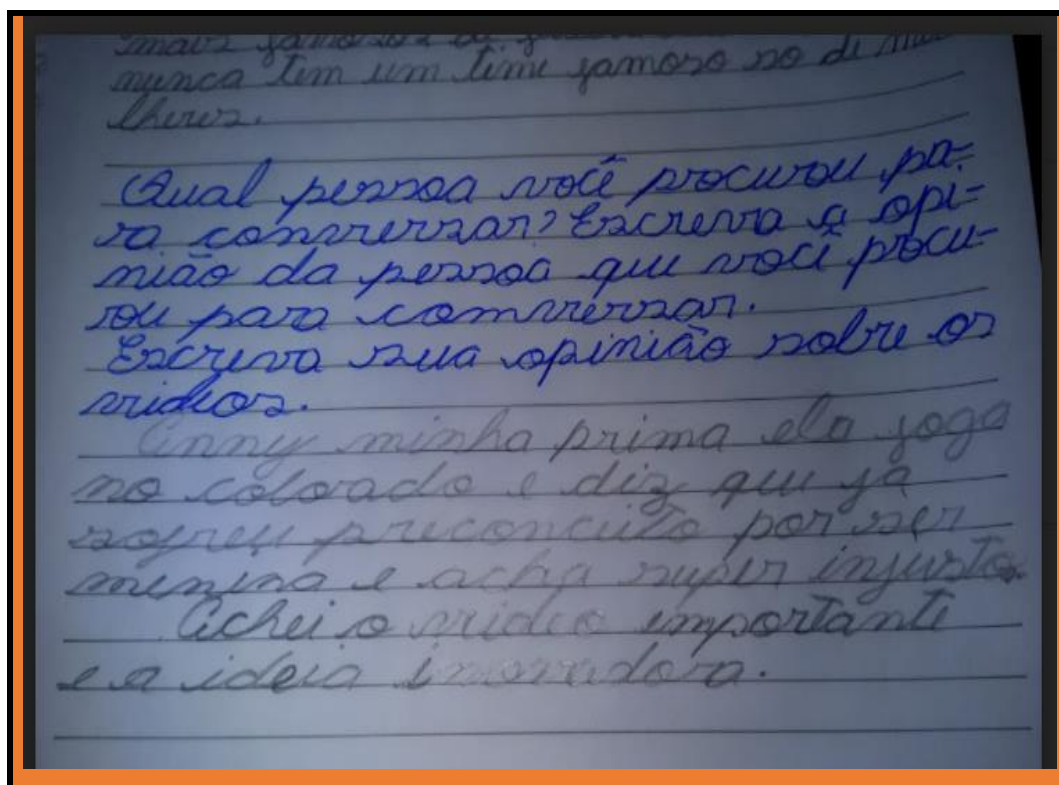 mais famosos de
nunca tem um time famoso so de mu
lheres.
Qual pessoa você procurou pa-
ra conversar? Escreva a opi-
nião da pessoa que você procu-
rou para conversar.
Escreva sua opinião sobre os
videos.
Anny minha prima ela joga
no colorado e diz que já
sofreu preconceito por ser
menina e acha super injusto.
Achei o video importante
e a ideia inovadora.